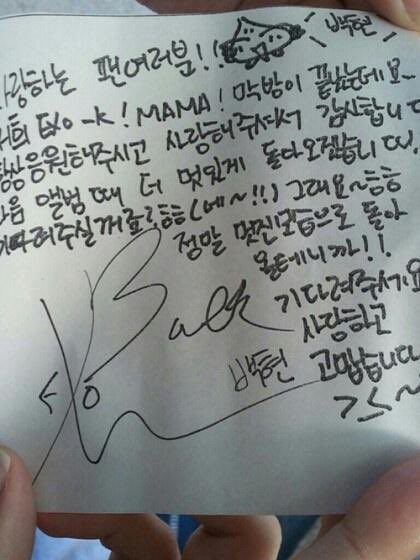 사랑하는 팬여러분!! 백현
저희 EXO-K! MAMA! 막방이 끝났는데요~
항상응원해주시고 사랑해주셔서 감사합니다
다음 앨범 때 더 멋있게 돌아오겠습니다.
기다려주실꺼죠?흠흠(네~!!) 그래요~흠흠
정말 멋진모습으로 돌아
올테니까!!
기다려주세요
사랑하고
고맙습니다
>_<~
Baek
EXO
백현